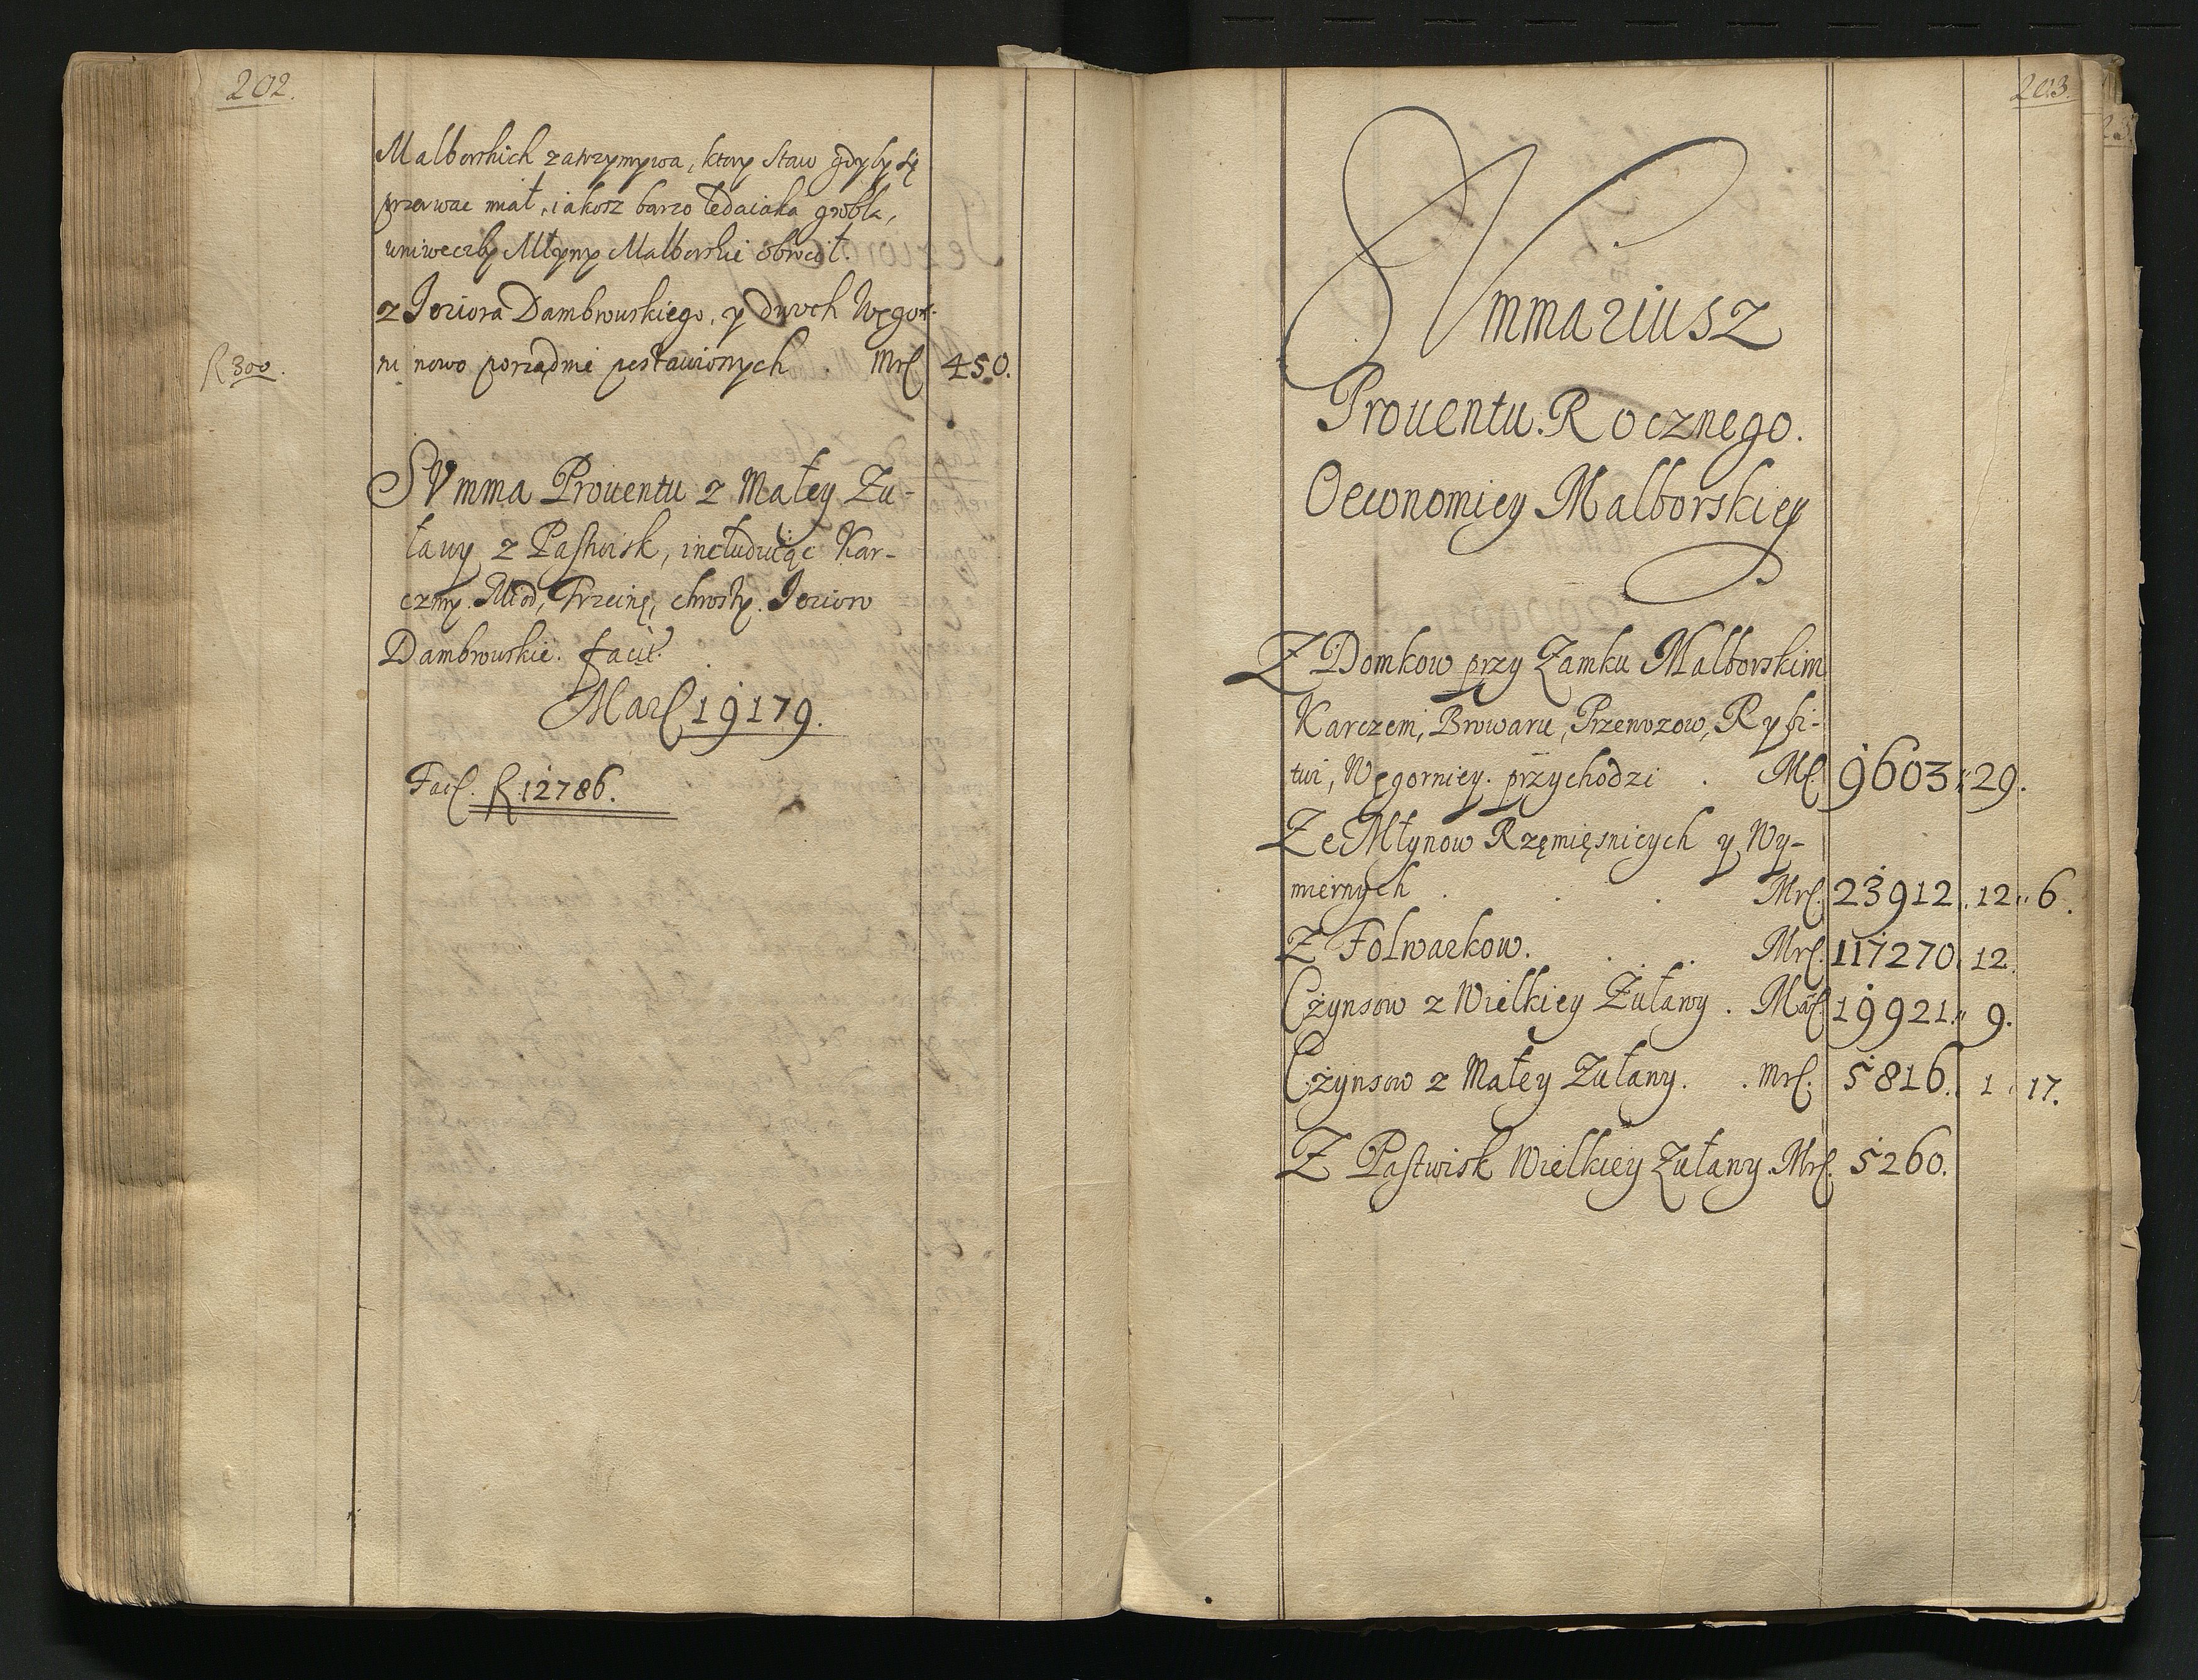 202.
Malborskich zatrzymywa, ktory staw gdyby się
przerwac miał, iakosz barzo ledaiaka grobla,
wniweczby Młyny Malborskie obrocił.
z Jeziora Dambrowskiego, y dwoch Węgor-
ni nowo porządnie postawionych . Mrc 450.
R 300.
SVmma Prouentu z Małey Zu-
ławy z Pastwisk, includuiąc Kar-
czmy. Miod, Trzcinę, chrosty. Jezioro
Dambrowskie. facit.
Marc 19179.
Facit. R. 12786.
203.
SVmmariusz
Prouentu. Rocznego.
Oeconomiey Malborskiey
Z Domkow przy Zamku Malborskim
Karczem, Browaru, Przewozow, Rybi-
twi, Węgorniey. przychodzi . Mc 9603 " 29.
Ze Młynow Rzęmięsnicych y Wy-
miernych . . . Mrc. 23912 " 12 " 6.
Z Folwarkow. . . Mrc. 117270. 12.
Czynsow z Wielkiey Żuławy . Marc. 19921. " 9.
Czynsow z Małey Żuławy. . Mrc. 5816. 1 17.
Z Pastwisk Wielkiey Żuławy Mrc. 5260.